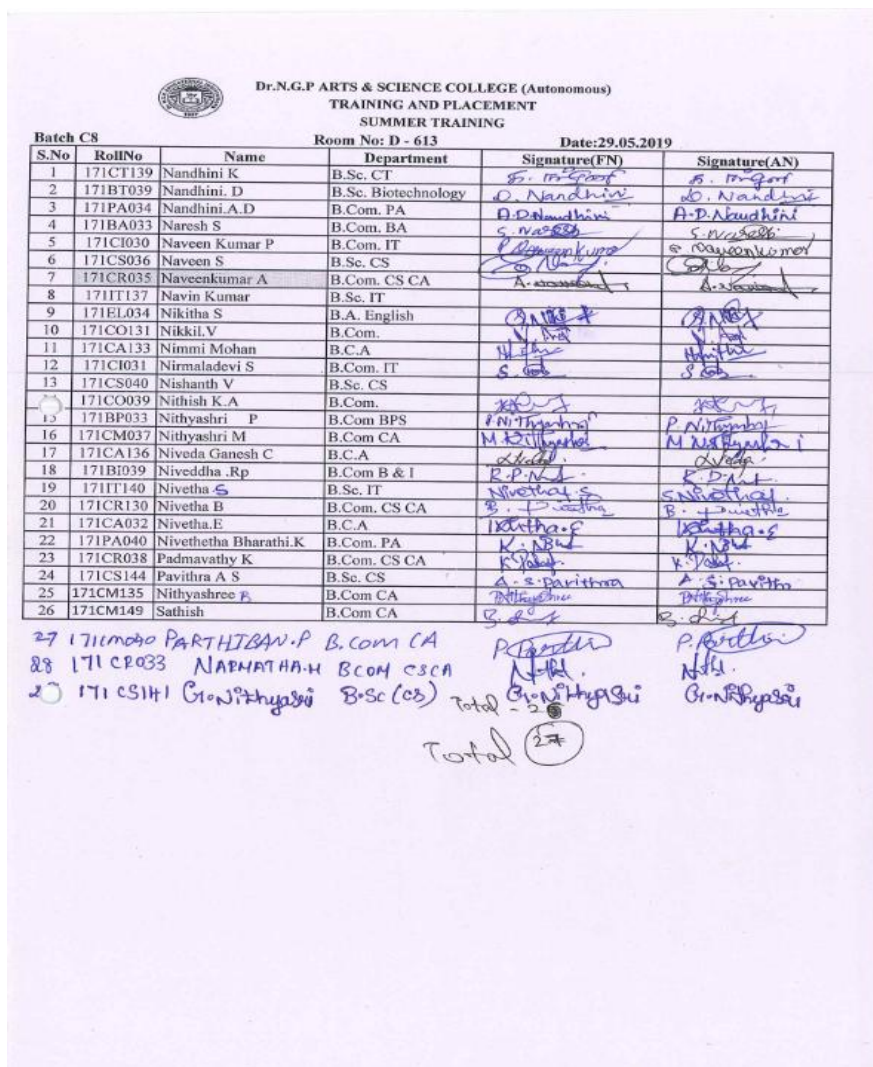 Dr.N.G.P ARTS & SCIENCE COLLEGE (Autonomous)
TRAINING AND PLACEMENT
SUMMER TRAINING
Batch C8 Room No: D - 613 Date:29.05.2019
S.No RollNo Name Department Signature(FN) Signature(AN)
1 171CT139 Nandhini K B.Sc. CT
2 171BT039 Nandhini. D B.Sc. Biotechnology D. Nandhini D. Nandhini
3 171PA034 Nandhini.A.D B.Com. PA A.D.Nandhini A.D.Nandhini
4 171BA033 Naresh S B.Com. BA S. Naresh S. Naresh
5 171CI030 Naveen Kumar P B.Com. IT P Naveenkumar Naveenkumar
6 171CS036 Naveen S B.Sc. CS
7 171CR035 Naveenkumar A B.Com. CS CA
8 171IT137 Navin Kumar B.Sc. IT
9 171EL034 Nikitha S B.A. English
10 171CO131 Nikkil.V B.Com.
11 171CA133 Nimmi Mohan B.C.A
12 171CI031 Nirmaladevi S B.Com. IT
13 171CS040 Nishanth V B.Sc. CS
171CO039 Nithish K.A B.Com.
15 171BP033 Nithyashri P B.Com BPS
16 171CM037 Nithyashri M B.Com CA M Nithyashri
17 171CA136 Niveda Ganesh C B.C.A
18 171BI039 Niveddha .Rp B.Com B & I
19 171IT140 Nivetha S B.Sc. IT Nivetha S S.Nivetha
20 171CR130 Nivetha B B.Com. CS CA
21 171CA032 Nivetha.E B.C.A
22 171PA040 Nivethetha Bharathi.K B.Com. PA
23 171CR038 Padmavathy K B.Com. CS CA
24 171CS144 Pavithra A S B.Sc. CS A.S.Pavithra A.S.Pavithra
25 171CM135 Nithyashree R B.Com CA Nithyashree Nithyashree
26 171CM149 Sathish B.Com CA
27 171CM040 PARTHIBAN.P B.Com CA P.Parthi P.Parthi
28 171 CR033 NARMATHA.M BCOM CSCA
171 CS141 G.Nithyasri B.Sc (CS) G.Nithyasri G.Nithyasri
Total -
Total 27